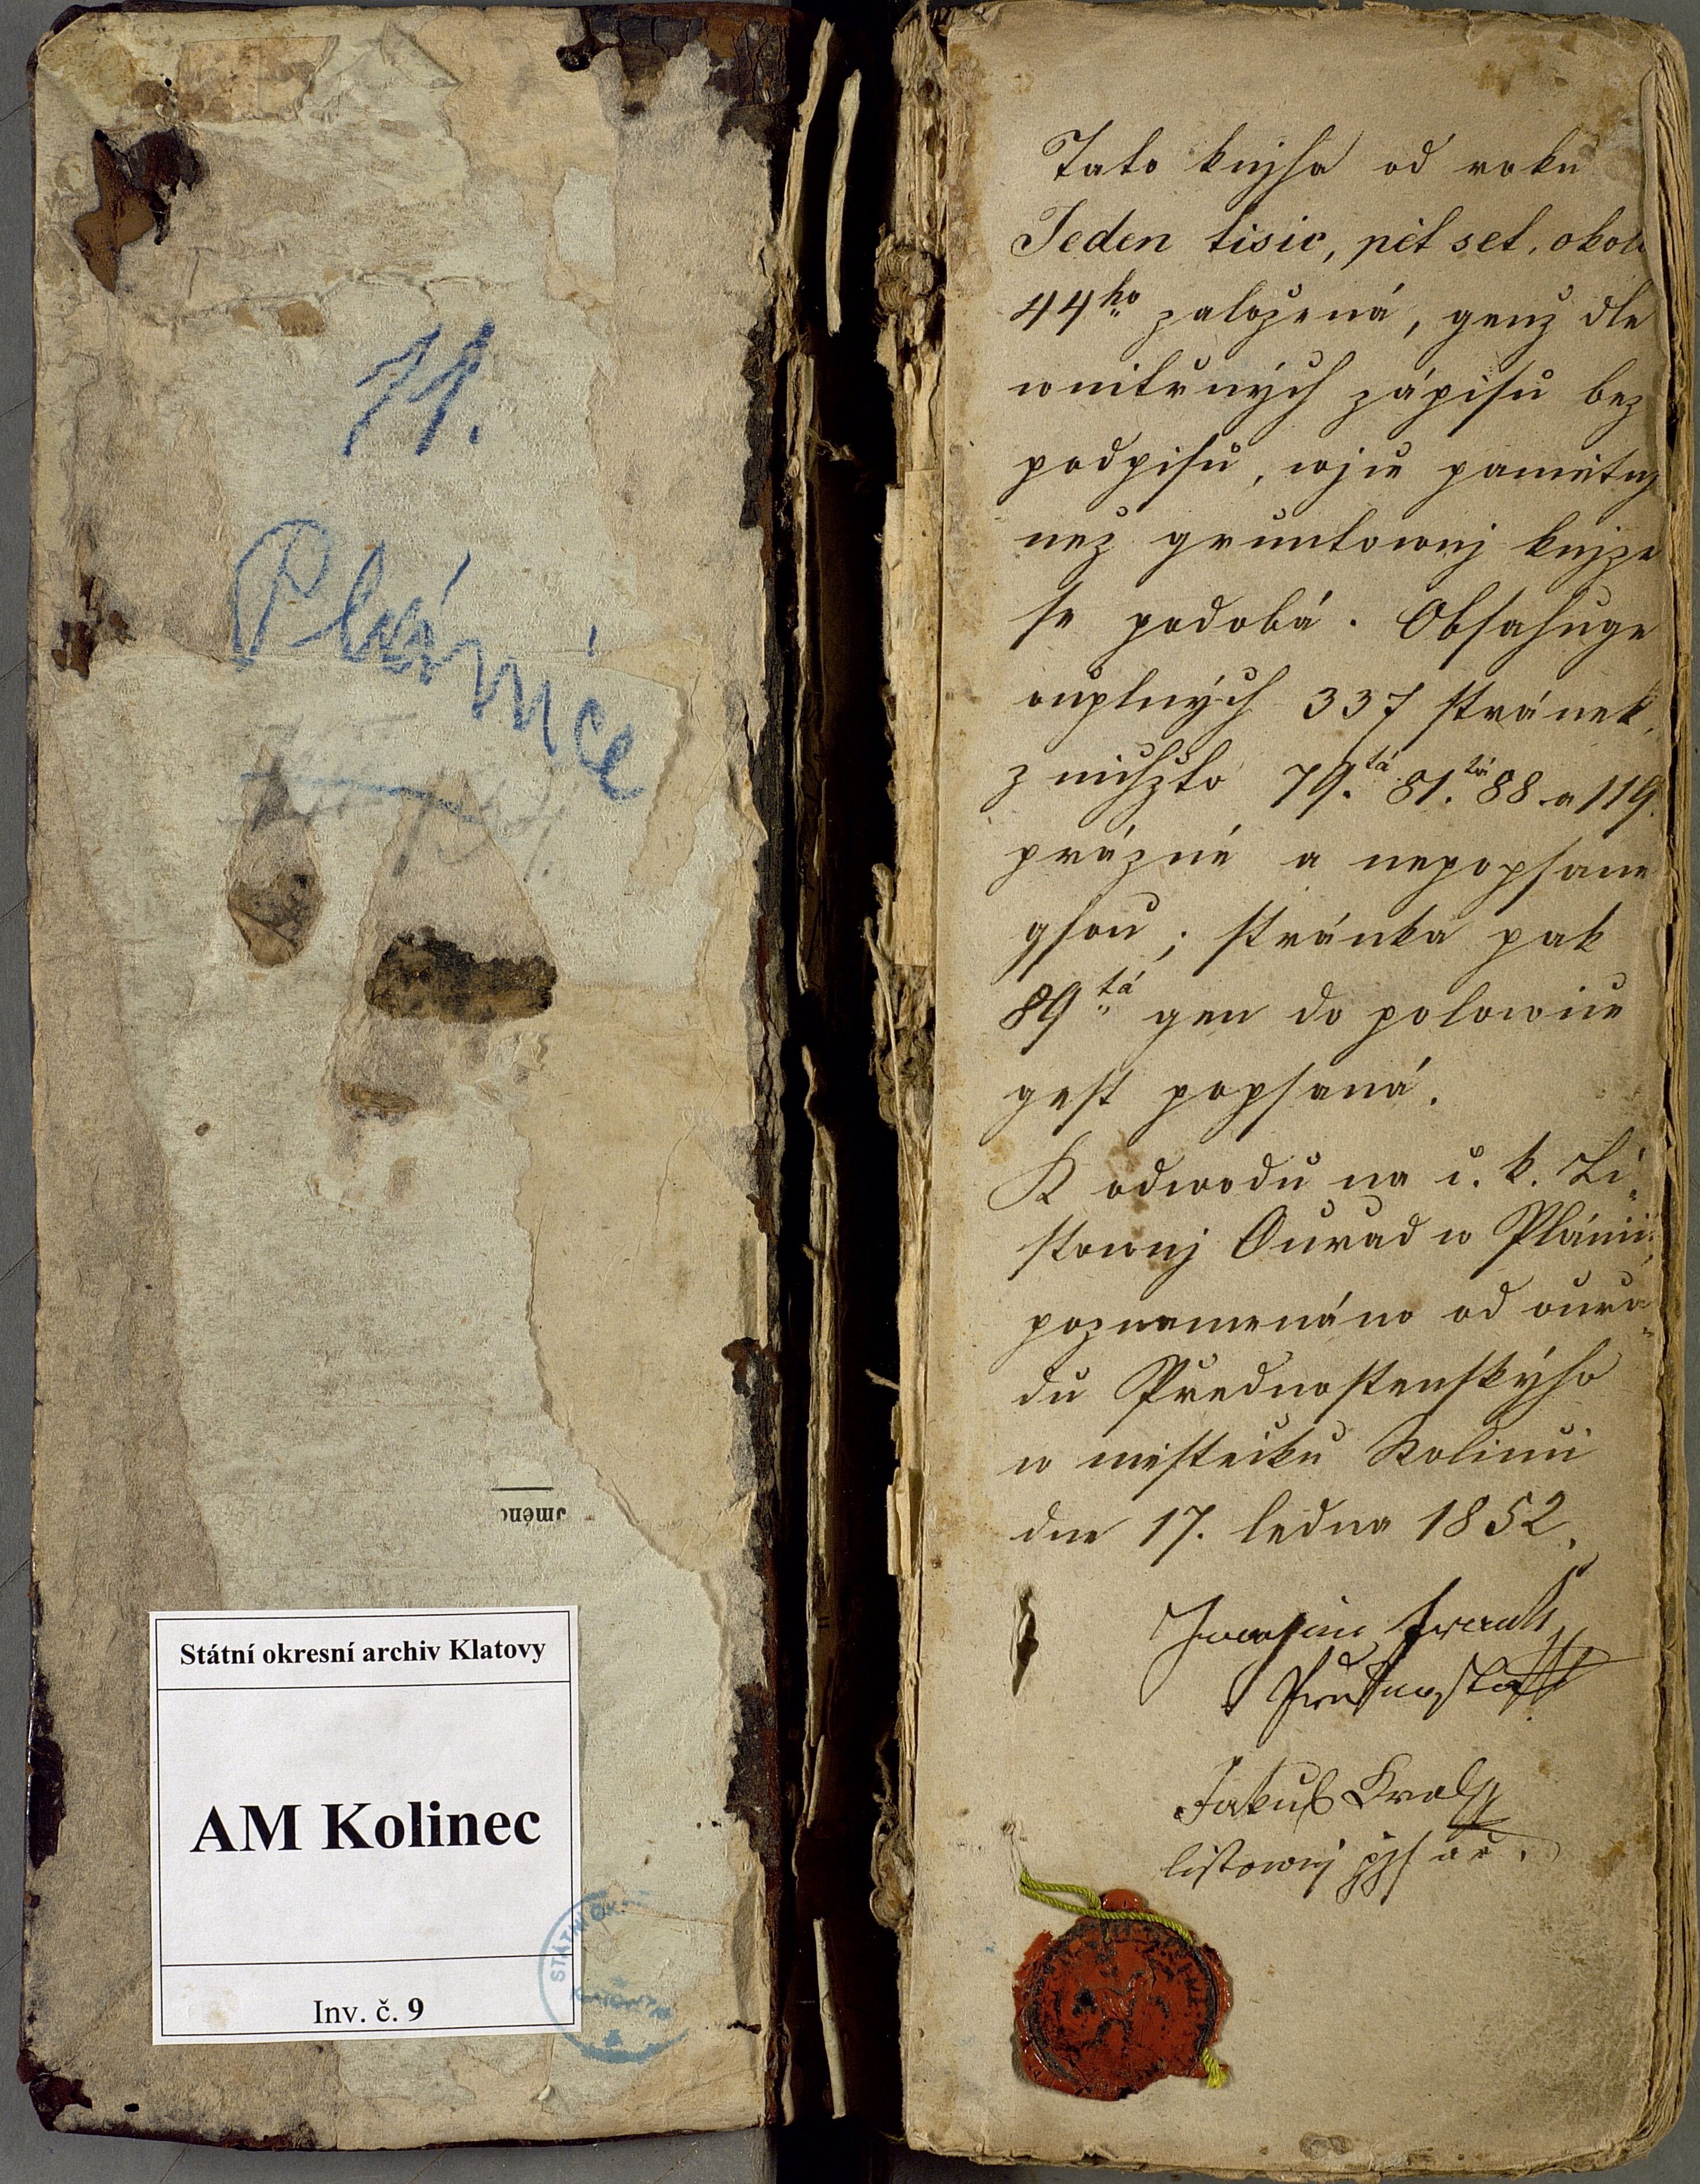 71.
Plánice
Jméno
Státní okresní archiv Klatovy
AM Kolinec
Inv. č. 9
STÁTNÍ OK
Tato knjha od roku
Jeden tisíc, pět set, okolo
44ho založená, genž dle
wnitřných zápisů bez
podpisů, wjce pamětnj
než gruntownj knjze
se podobá. Obsahuge
auplných 337 stránek,
z nichžto 79.tá 81.tá 88. a 119.
prázné a nepopsane
gsou; stránka pak
89tá gen do polowice
gest popsaná.
K odwodu na c. k. Li-
stownj Ouřad w Plánici
poznamenáno od ouřa-
du Přednostenskýho
w městečku Kolinci
dne 17. ledna 1852.
Joachim
Přednosta
Jakub Kral
listowný pjsař.